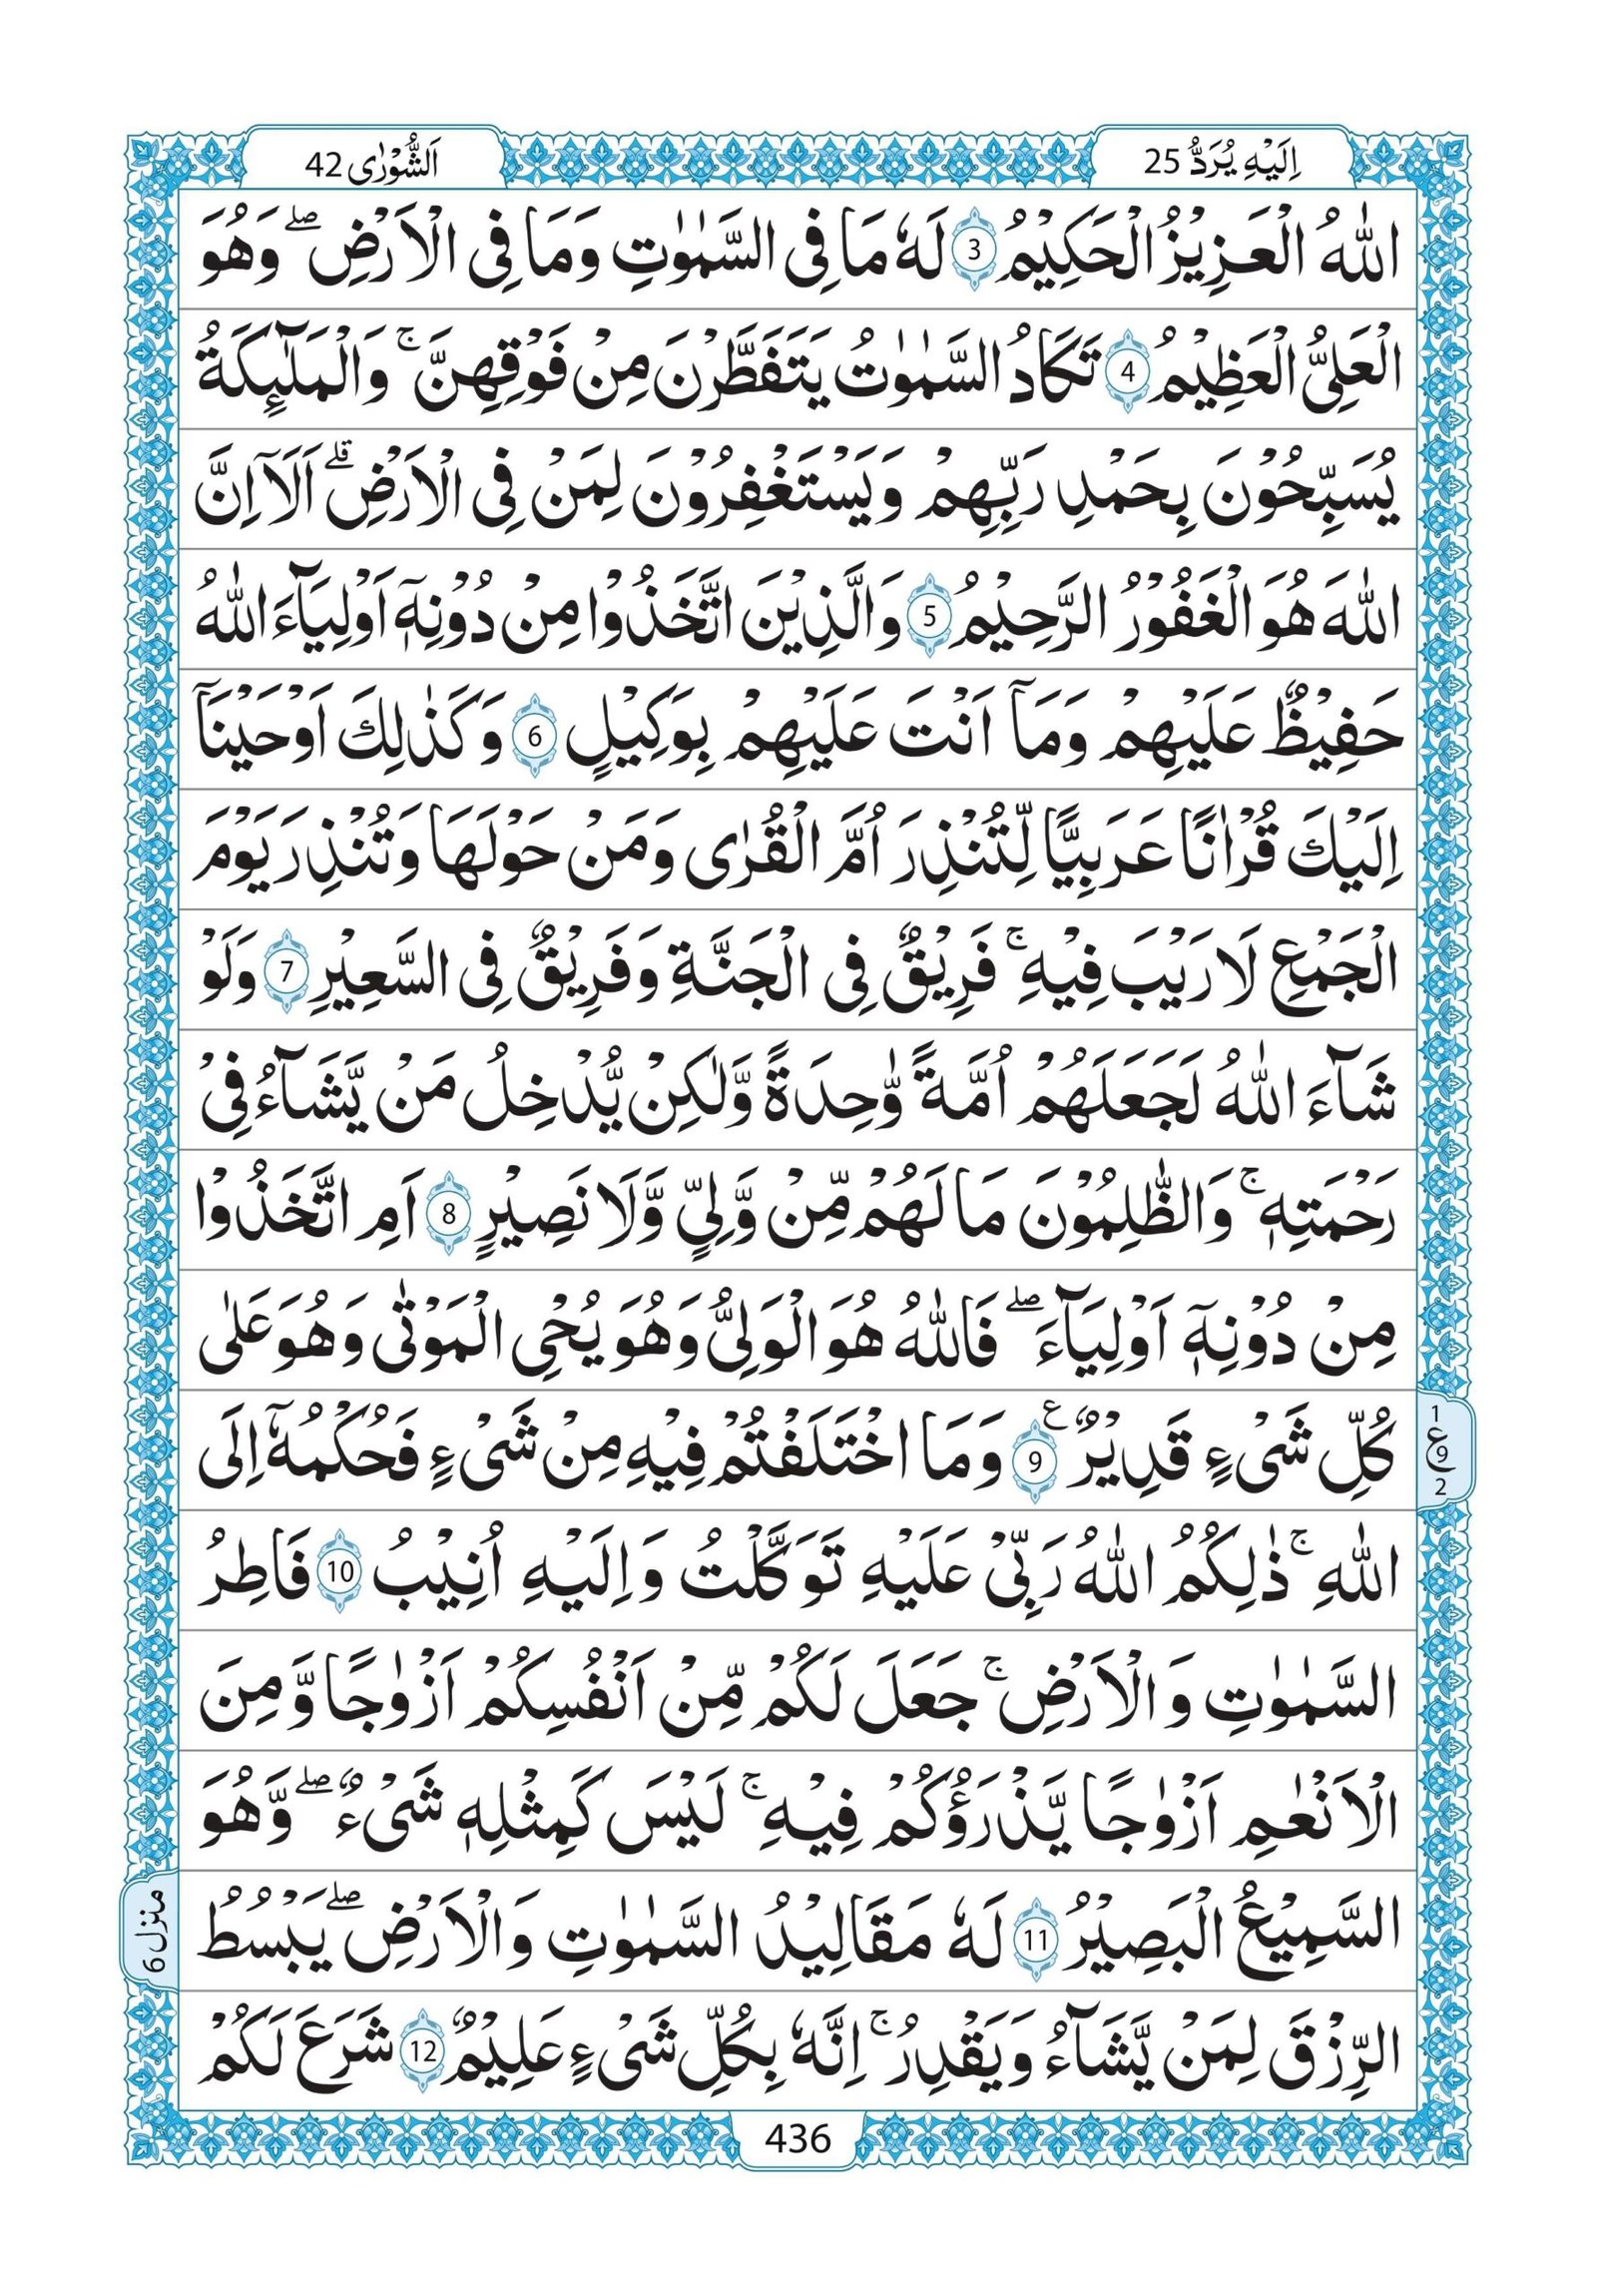 اِلَيْهِ يُرَدُّ 25
اَلشُّوْرٰى 42
اللّٰهُ الْعَزِيْزُ الْحَكِيْمُ 3 لَهٗ مَا فِى السَّمٰوٰتِ وَمَا فِى الْاَرْضِ ۖ وَهُوَ
الْعَلِىُّ الْعَظِيْمُ 4 تَكَادُ السَّمٰوٰتُ يَتَفَطَّرْنَ مِنْ فَوْقِهِنَّ ۚ وَالْمَلٰٓئِكَةُ
يُسَبِّحُوْنَ بِحَمْدِ رَبِّهِمْ وَيَسْتَغْفِرُوْنَ لِمَنْ فِى الْاَرْضِ ۗ اَلَآ اِنَّ
اللّٰهَ هُوَ الْغَفُوْرُ الرَّحِيْمُ 5 وَالَّذِيْنَ اتَّخَذُوْا مِنْ دُوْنِهٖٓ اَوْلِيَآءَ اللّٰهُ
حَفِيْظٌ عَلَيْهِمْ وَمَآ اَنْتَ عَلَيْهِمْ بِوَكِيْلٍ 6 وَكَذٰلِكَ اَوْحَيْنَآ
اِلَيْكَ قُرْاٰنًا عَرَبِيًّا لِّتُنْذِرَ اُمَّ الْقُرٰى وَمَنْ حَوْلَهَا وَتُنْذِرَ يَوْمَ
الْجَمْعِ لَا رَيْبَ فِيْهِ ۚ فَرِيْقٌ فِى الْجَنَّةِ وَفَرِيْقٌ فِى السَّعِيْرِ 7 وَلَوْ
شَآءَ اللّٰهُ لَجَعَلَهُمْ اُمَّةً وّٰحِدَةً وَّلٰكِنْ يُّدْخِلُ مَنْ يَّشَآءُ فِىْ
رَحْمَتِهٖ ۚ وَالظّٰلِمُوْنَ مَا لَهُمْ مِّنْ وَّلِىٍّ وَّلَا نَصِيْرٍ 8 اَمِ اتَّخَذُوْا
مِنْ دُوْنِهٖٓ اَوْلِيَآءَ ۖ فَاللّٰهُ هُوَ الْوَلِىُّ وَهُوَ يُحْىِ الْمَوْتٰى وَهُوَ عَلٰى
كُلِّ شَىْءٍ قَدِيْرٌ ع 9 وَمَا اخْتَلَفْتُمْ فِيْهِ مِنْ شَىْءٍ فَحُكْمُهٗٓ اِلَى
1
ع 9
2
اللّٰهِ ۚ ذٰلِكُمُ اللّٰهُ رَبِّىْ عَلَيْهِ تَوَكَّلْتُ وَاِلَيْهِ اُنِيْبُ 10 فَاطِرُ
السَّمٰوٰتِ وَالْاَرْضِ ۚ جَعَلَ لَكُمْ مِّنْ اَنْفُسِكُمْ اَزْوٰجًا وَّمِنَ
الْاَنْعٰمِ اَزْوٰجًا يَّذْرَؤُكُمْ فِيْهِ ۚ لَيْسَ كَمِثْلِهٖ شَىْءٌ ۖ وَّهُوَ
السَّمِيْعُ الْبَصِيْرُ 11 لَهٗ مَقَالِيْدُ السَّمٰوٰتِ وَالْاَرْضِ ۖ يَبْسُطُ
منزل 6
الرِّزْقَ لِمَنْ يَّشَآءُ وَيَقْدِرُ ۚ اِنَّهٗ بِكُلِّ شَىْءٍ عَلِيْمٌ 12 شَرَعَ لَكُمْ
436